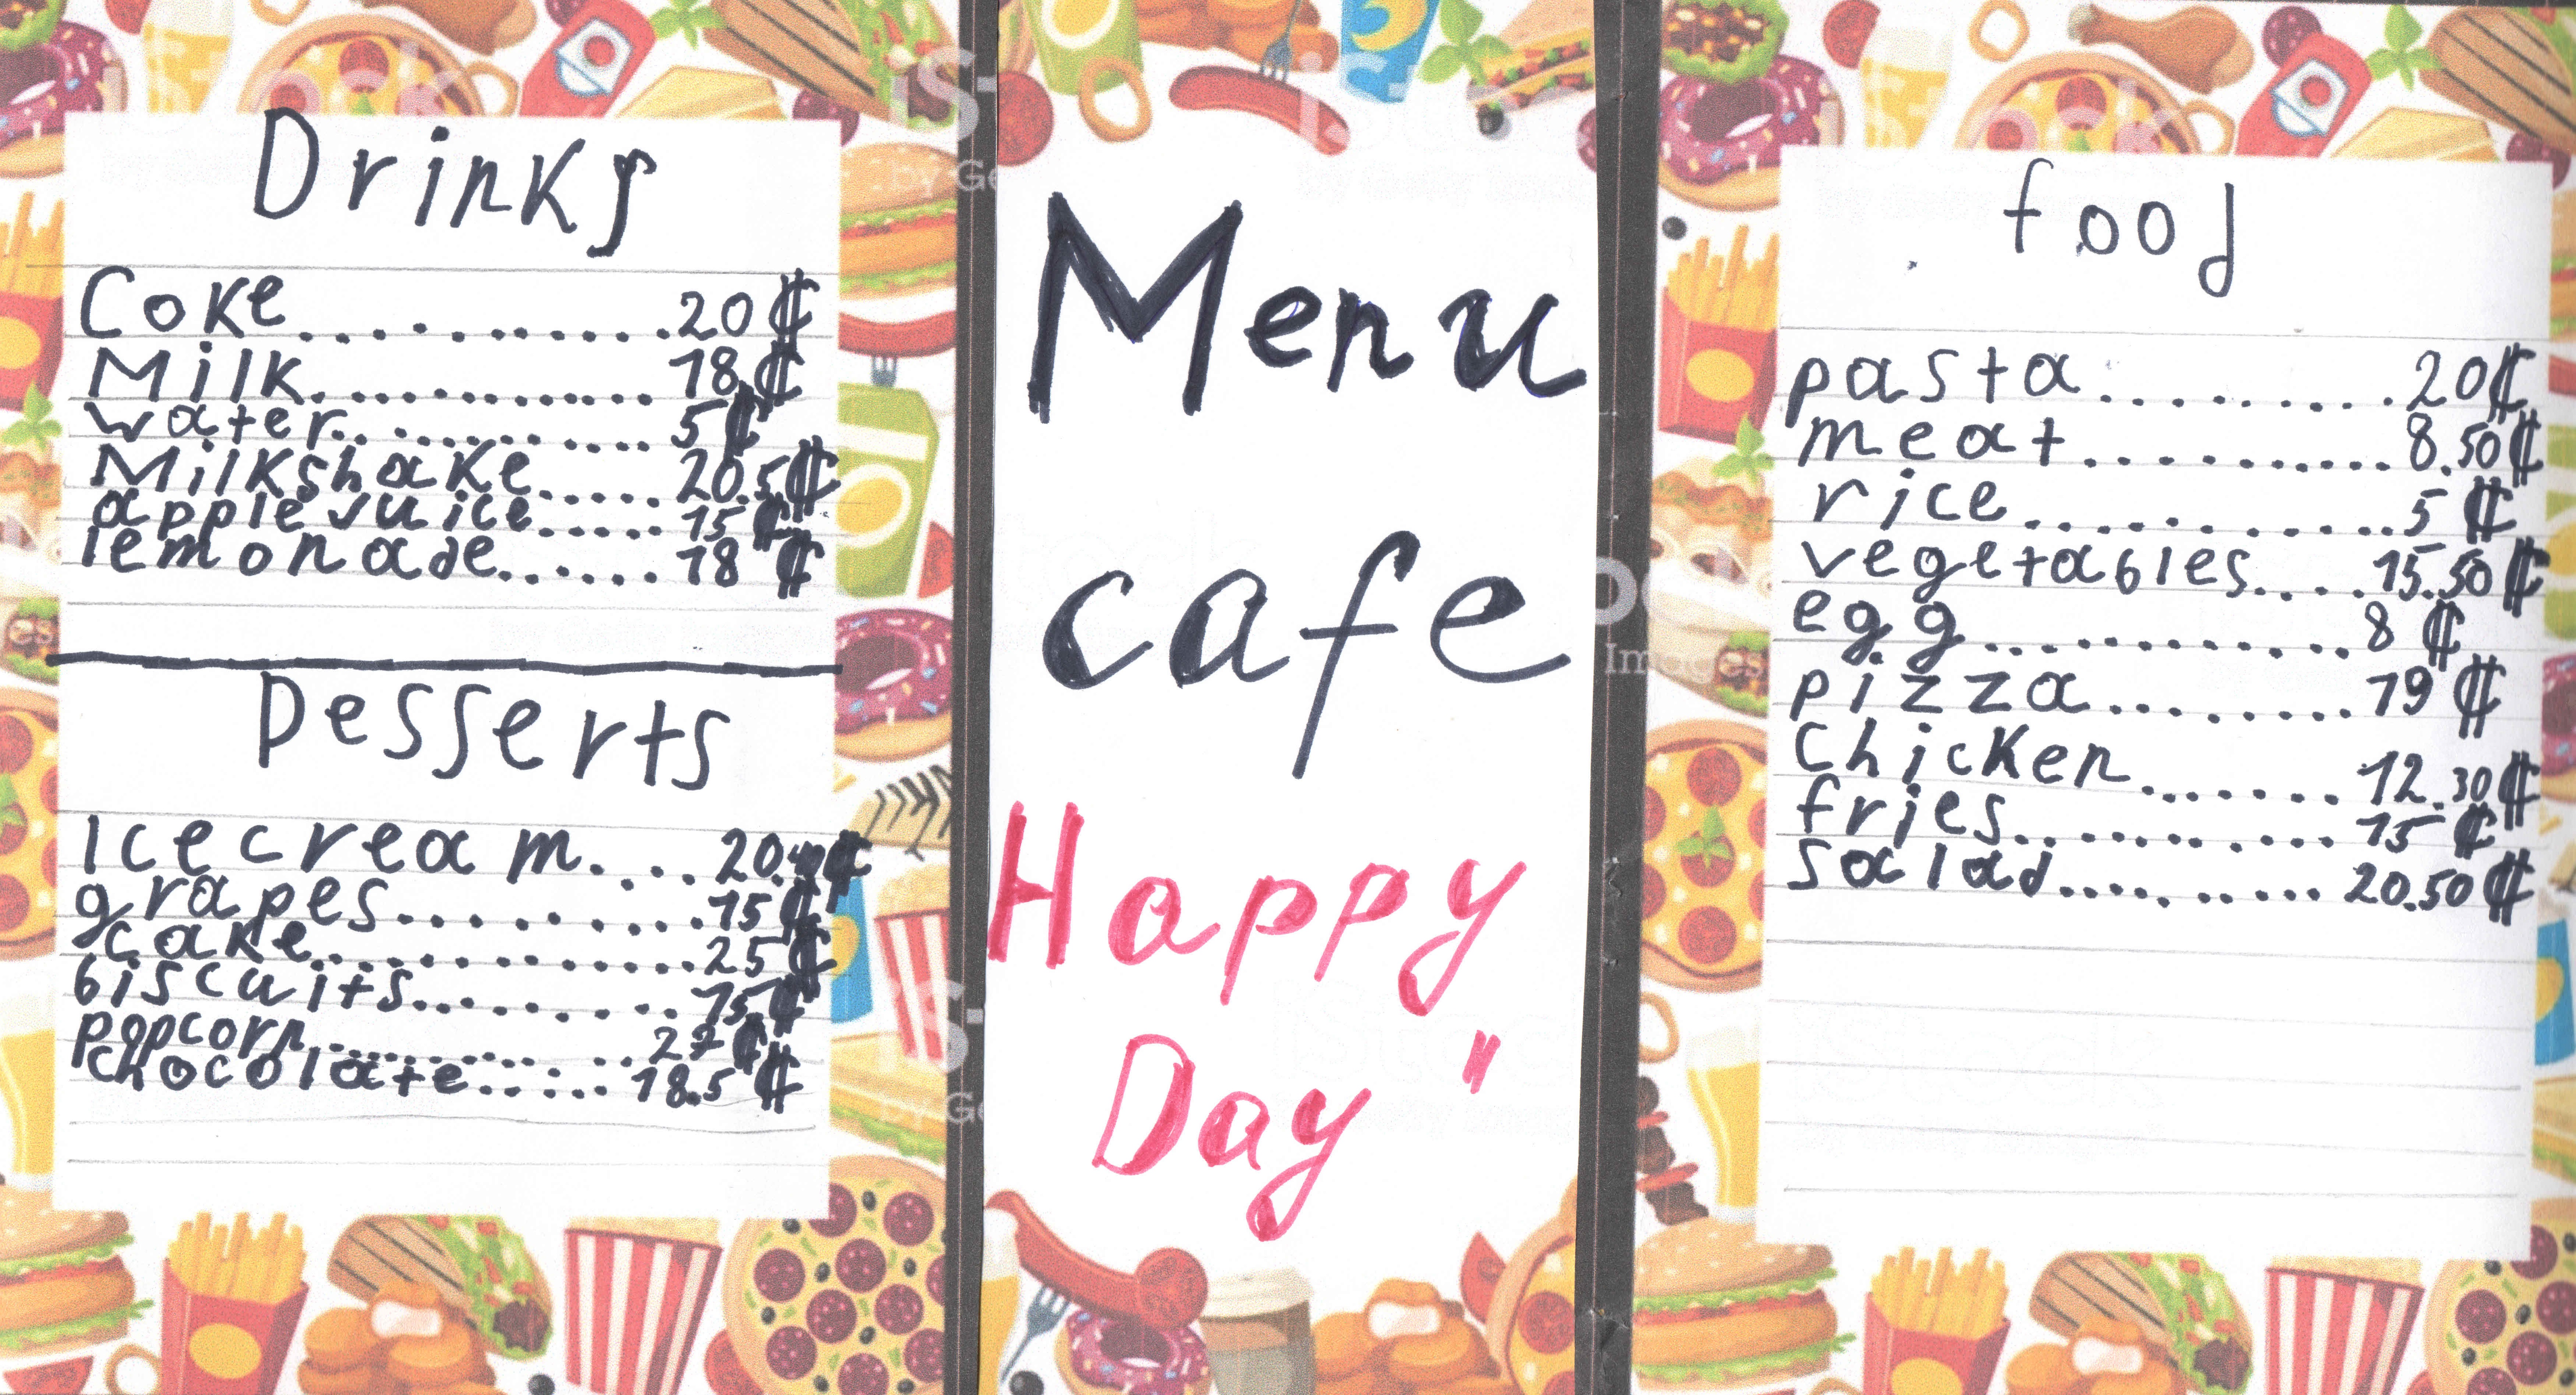 Drinks
Coke...........20₡
Milk............18₡
water..........5₡
Milkshake......20.5₡
apple juice.....15₡
lemonade......18₡
Desserts
Icecream....20.₡
grapes.........15₡
cake............25₡
biscuits........15₡
popcorn..........₡
chocolate......18.5₡
Menu
cafe
Happy
Day"
food
pasta..........20₡
meat..........8.50₡
rice...........5₡
vegetables....15.50₡
egg...........8₡
pizza........19₡
Chicken.......12.30₡
fries..........15₡
salad..........20.50₡